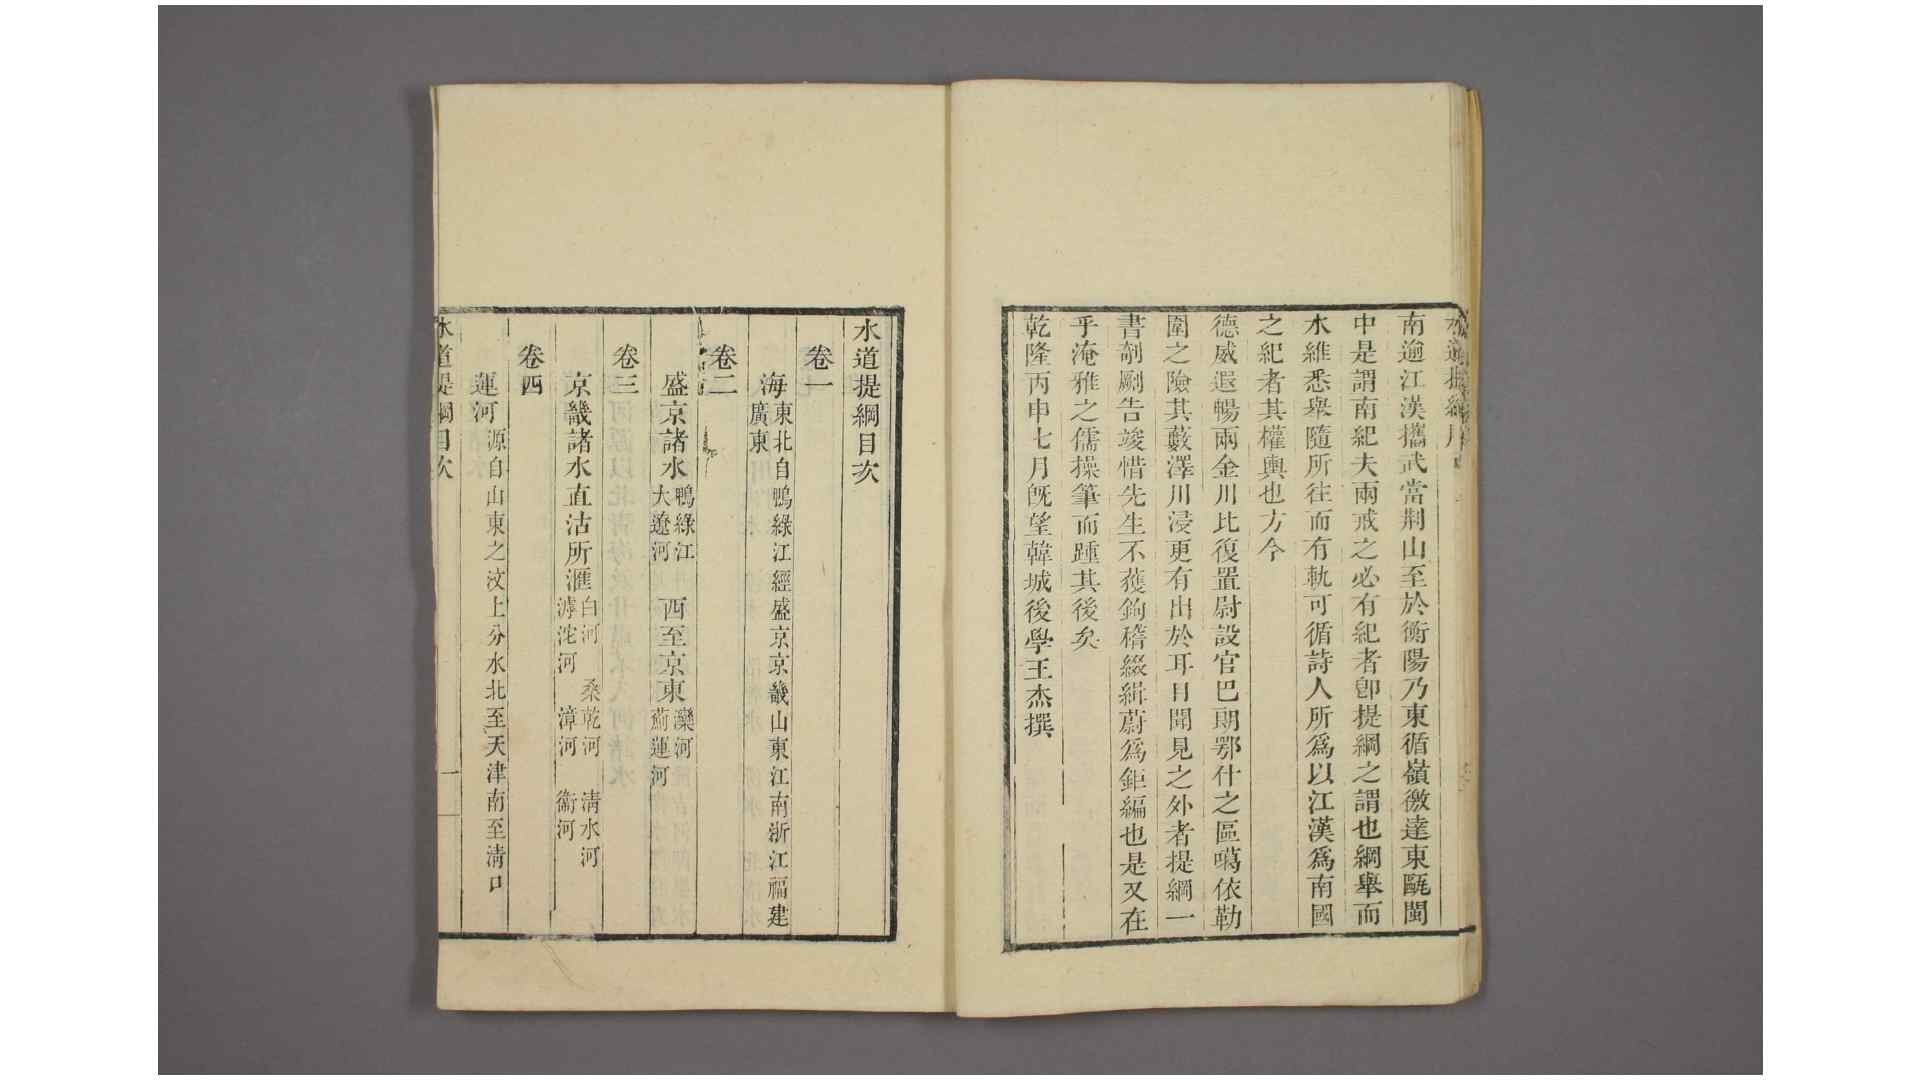 水道提綱序
南逾江漢攜武當荆山至於衡陽乃東循嶺徼達東甌閩
中是謂南紀夫兩戒之必有紀者卽提綱之謂也綱舉而
水維悉舉隨所往而有軌可循詩人所爲以江漢爲南國
之紀者其權輿也方今
德威遐暢兩金川比復置尉設官巴朗鄂什之區噶依勒
圍之險其藪澤川浸更有出於耳目聞見之外者提綱一
書剞劂告竣惜先生不獲鉤稽綴緝蔚爲鉅編也是又在
乎淹雅之儒操筆而踵其後矣
乾隆丙申七月旣望韓城後學王杰撰
水道提綱目次
卷一
海東北自鴨綠江經盛京京畿山東江南浙江福建
廣東
卷二
盛京諸水鴨綠江
大遼河
西至京東灤河
薊運河
卷三
京畿諸水直沽所滙白河 桑乾河 淸水河
滹沱河 漳河 衞河
卷四
運河源自山東之汶上分水北至天津南至淸口
水道提綱目次
一